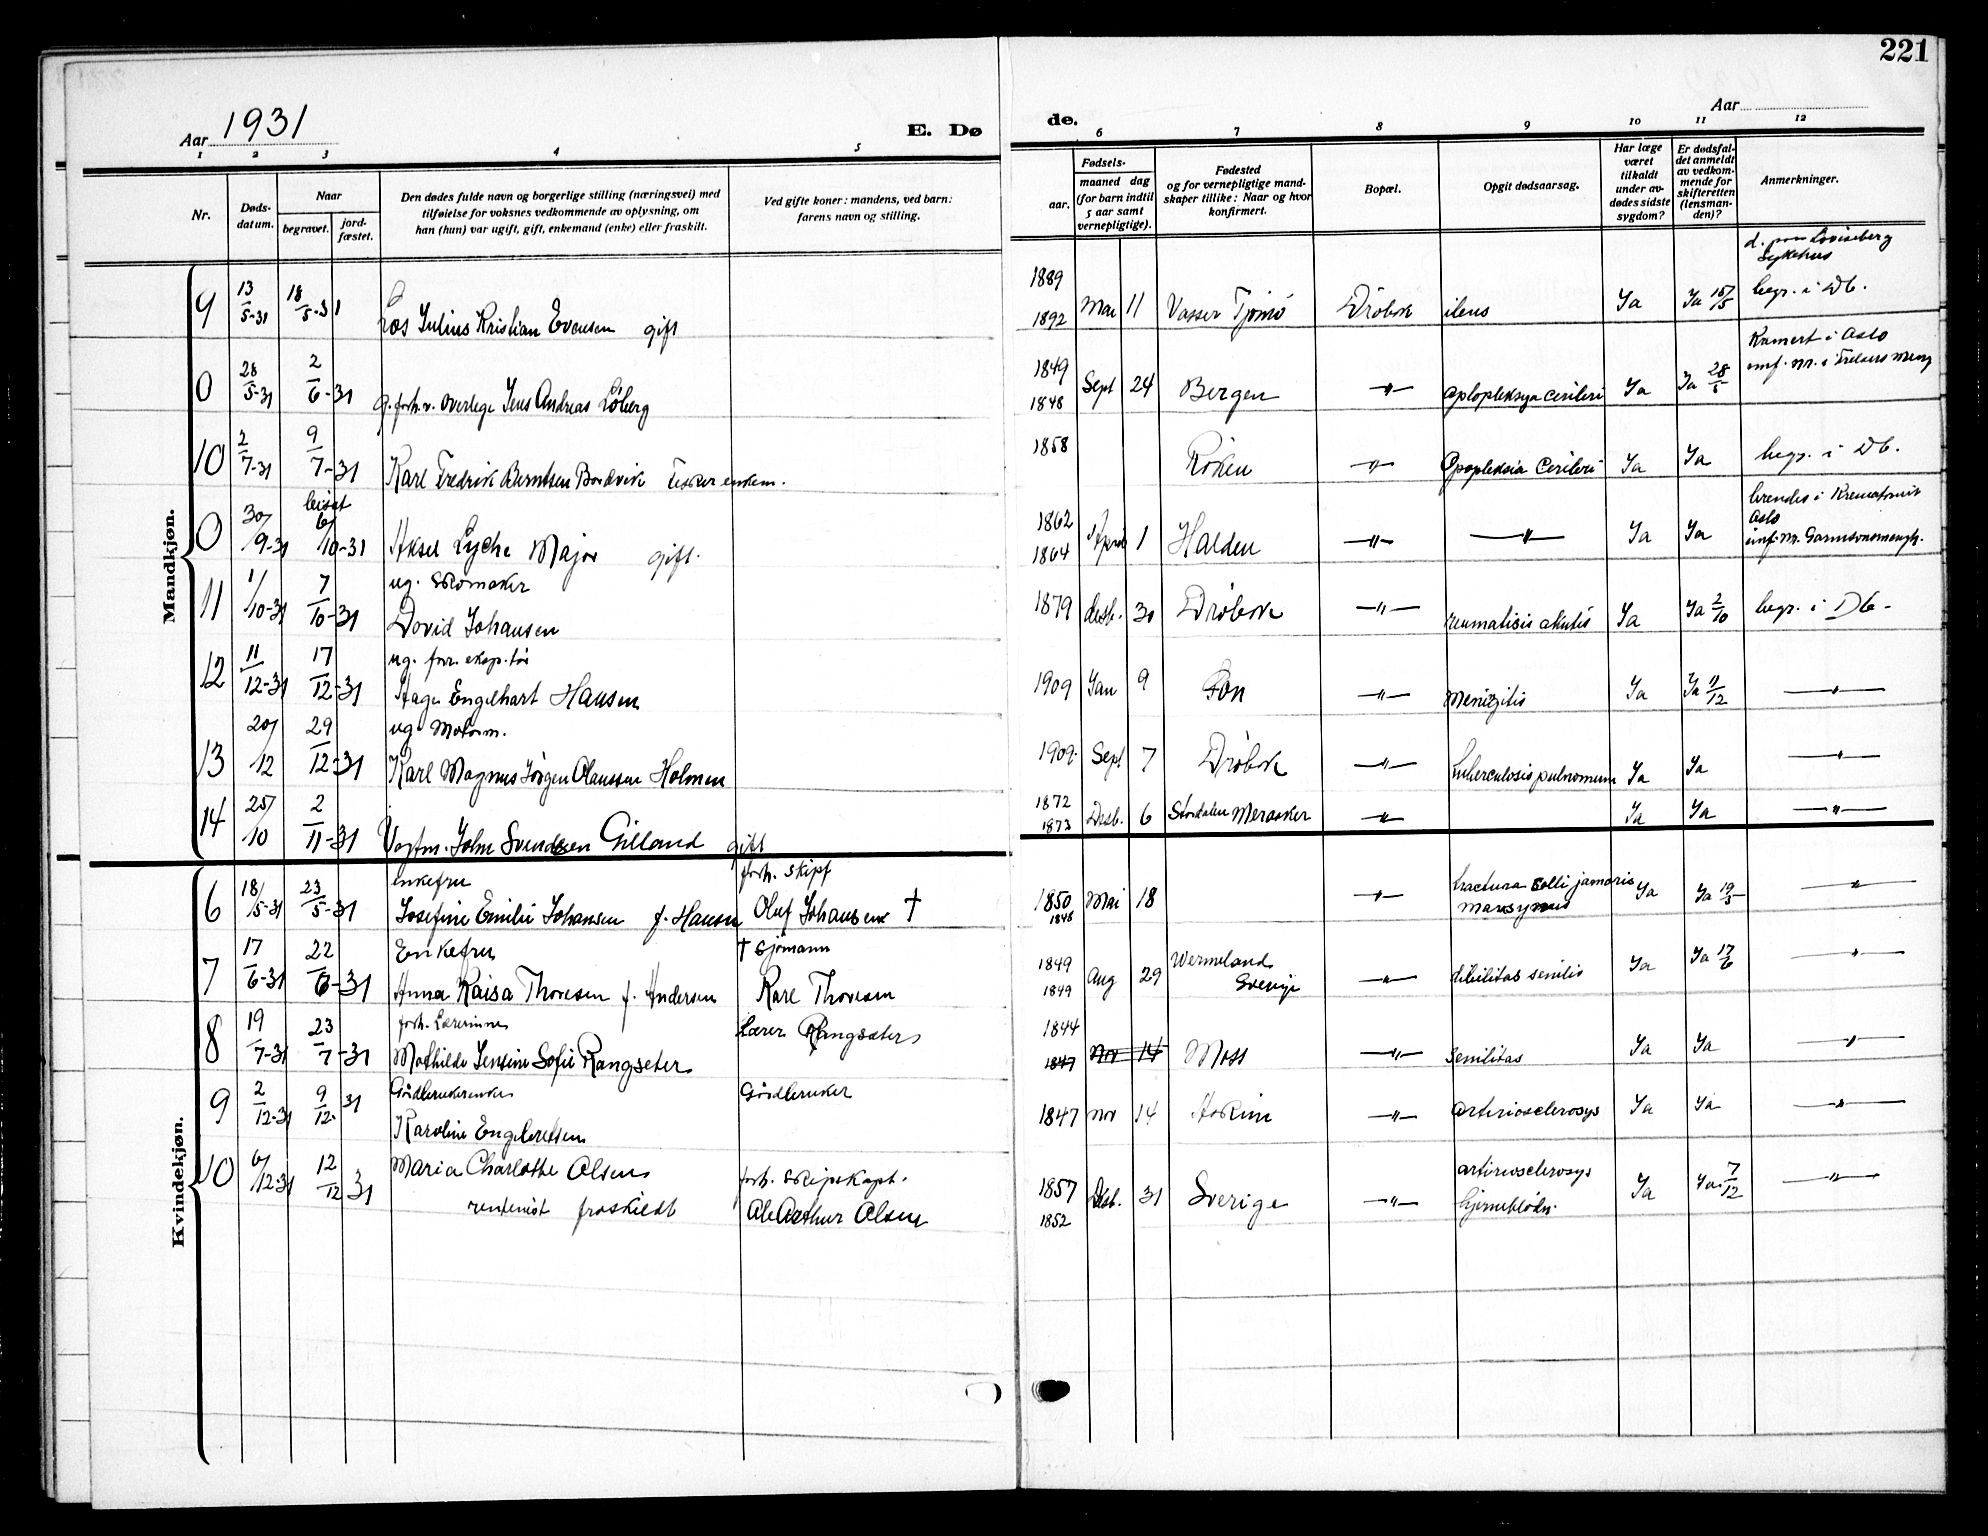 221
Aar 1931
E. Dø
de.
Aar
1 2 3 4 5 6 7 8 9 10 11 12
Nr.
Døds-
datum.
Naar
begravet.
jord-
fæstet.
Den dødes fulde navn og borgerlige stilling (næringsvei) med
tilføielse for voksnes vedkommende av oplysning, om
han (hun) var ugift, gift, enkemand (enke) eller fraskilt.
Ved gifte koner: mandens, ved barn:
farens navn og stilling.
Fødsels-
aar.
maaned dag
(for barn indtil
5 aar samt
vernepligtige).
Fødested
og for vernepligtige mand-
skaper tillike: Naar og hvor
konfirmert.
Bopæl.
Opgit dødsaarsag.
Har læge
været
tilkaldt
under av-
dødes sidste
sygdom?
Er dødsfal-
det anmeldt
av vedkom-
mende for
skifteretten
(lensman-
den)?
Anmerkninger.
Mandkjøn.
d. paa Lovisenberg
Sykehus
9 13/5-31 18/5-31 Los Julius Kristian Evensen gift 1889 1892 Mai 11 Vasser Tjømø Drøbak ileus Ja Ja 15/5 begr. i Db.
Kremert i Oslo
0 28/5-31 2/6-31 g. forh. v. overlege Jens Andreas Löberg 1849 1848 Sept 24 Bergen —"— aplopleksya cerileri Ja Ja 28/5 innf. nr. i Frelsers meng
10 2/7-31 9/7-31 Karl Fredrik Berntsen Bordvik Fisker enkem. 1858 Røken —"— Apopleksia Cerileri Ja Ja begr. i Db.
0 30/9-31 bisat 6/10-31 Aksel Lyche Major gift. 1862 1864 April 1 Halden —"— —"— Ja Ja brendes i Krematoriet
Oslo
innf. nr. Garnisonsmengh.
ug. skomaker
11 1/10-31 7/10-31 David Johansen 1879 desb. 30 Drøbak —"— reumatisis akutis Ja Ja 2/10 begr. i Db-
ug. forr. eksp. tør
12 11/12-31 17/12-31 Hage Engelhart Hansen 1909 Jan 9 Son —"— Menigitis Ja Ja 11/12 —"—
ug. Motorm.
13 20/12 29/12-31 Karl Magnus Jörgen Olaussen Holmen 1909 Sept 7 Drøbak —"— tuberculosis pulnomum Ja Ja —"—
14 25/10 2/11-31 Vagtm. John Svendsen Gilland gift 1872 1873 Desb. 6 Stordalen Meraaker —"— Ja Ja —"—
Kvindekjøn.
enkefru forh. skipf
6 18/5-31 23/5-31 Josefine Emilie Johansen f. Hansen Oluf Johansen † 1850 1848 Mai 18 —"— fractura colli jamoris Ja Ja 19/5 —"—
Enkefru † Sjömann
7 17/6-31 22/6-31 Anna Kaisa Thoresen f. Andersen Karl Thoresen 1849 1849 Aug 29 Wermeland Sverige —"— debilitas senilis Ja Ja 17/6 —"—
forh. Lærerinne Lærer Rangsæter
8 19/7-31 23/7-31 Mathilde Jensine Sofie Rangseter 1844 1847 Nov 14 Moss —"— senilitas Ja Ja —"—
Gårdbrukerenke Gårdbruker
9 2/12-31 9/12-31 Karoline Engebretsen 1847 nov 14 Askim —"— arteriosclerosys Ja Ja —"—
10 6/12-31 12/12 31 Maria Charlotte Olsen forh. Skipskapt. artireosclerosys
rentenist fraskildt Ale Arthur Olsen 1857 1852 Desb. 31 Sverige —"— hjerneblødn. Ja Ja 7/12 —"—